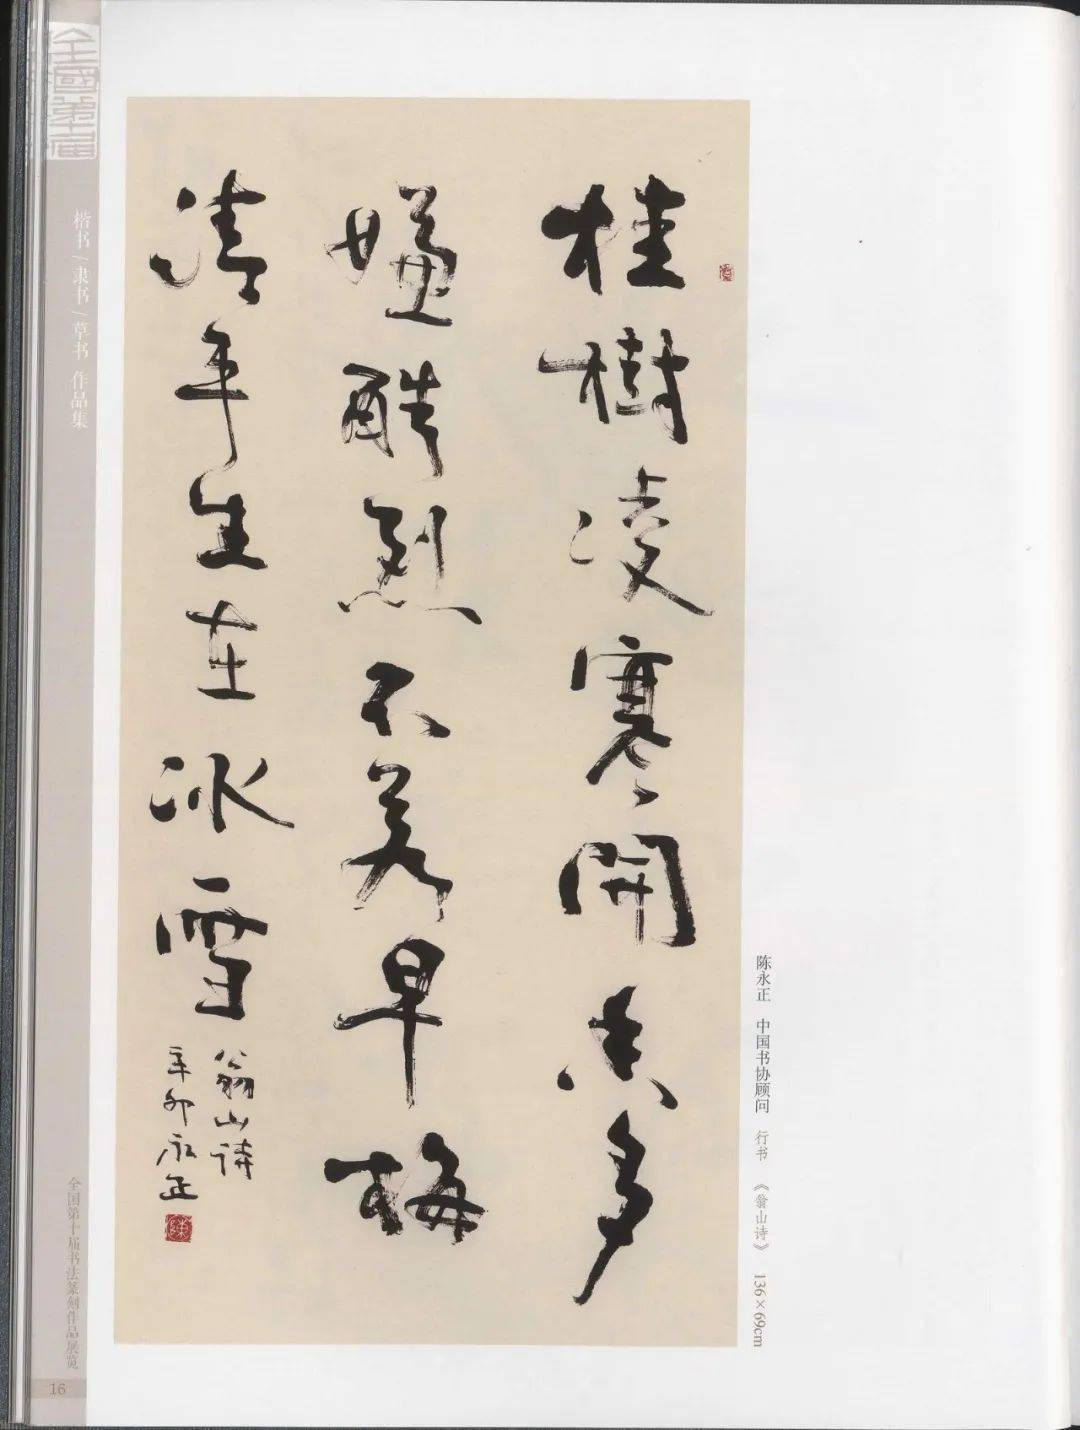 桂樹凌寒開香多
嫌酷烈不羡早梅
清平生在冰雪
翁山詩
辛卯永正
陈永正 中国书协顾问 行书 《翁山诗》 136×69cm
全國第十届
楷书/隶书/草书 作品集
全国第十届书法篆刻作品展览
16